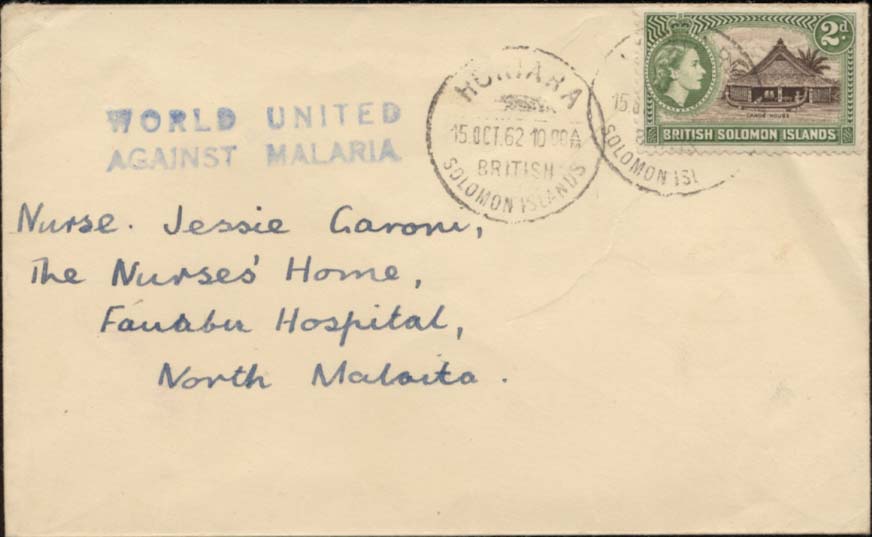 2d
CANOE HOUSE
BRITISH SOLOMON ISLANDS
HONIARA
15.OCT.62 10 00 AM
BRITISH
SOLOMON ISLANDS
15
SOLOMON ISL
WORLD UNITED
AGAINST MALARIA
Nurse. Jessie Garoni,
The Nurses' Home,
Fauabu Hospital,
North Malaita.